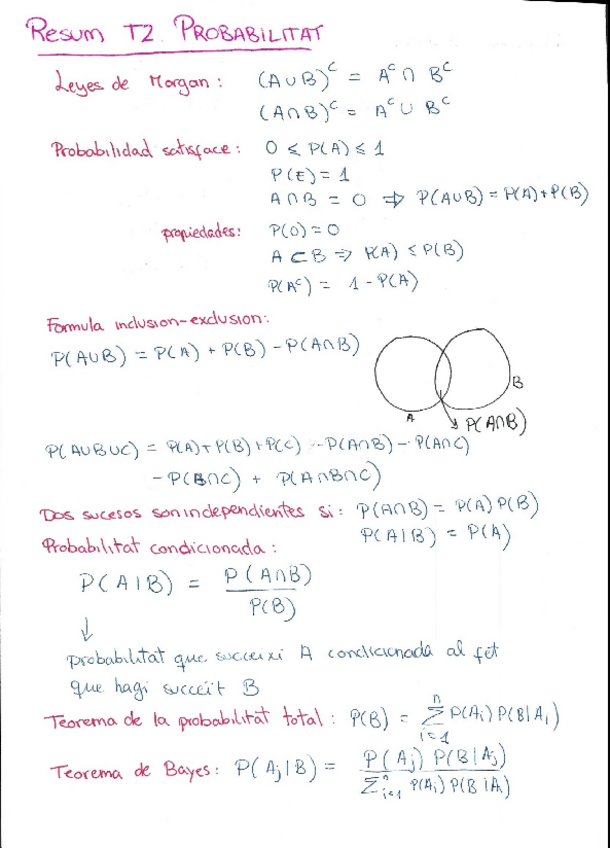 Resum T2. PROBABILITAT
Leyes de Morgan: (A∪B)ᶜ = Aᶜ ∩ Bᶜ
(A∩B)ᶜ = Aᶜ ∪ Bᶜ
Probabilidad satisface: 0 ≤ P(A) ≤ 1
P(E) = 1
A∩B = 0 ⇒ P(A∪B) = P(A)+P(B)
propiedades: P(0)=0
A ⊂ B ⇒ P(A) ≤ P(B)
P(Aᶜ) = 1 - P(A)
Formula inclusion-exclusion:
P(A∪B) = P(A) + P(B) - P(A∩B)
B
A
P(A∩B)
P(A∪B∪C) = P(A)+P(B)+P(C) - P(A∩B) - P(A∩C)
- P(B∩C) + P(A∩B∩C)
Dos sucesos son independientes si: P(A∩B) = P(A) P(B)
P(A|B) = P(A)
Probabilitat condicionada:
P(A|B) = P(A∩B) / P(B)
↓
probabilitat que succeixi A condicionada al fet
que hagi succeït B
Teorema de la probabilitat total: P(B) = ∑ᵢ₌₁ⁿ P(Aᵢ) P(B|Aᵢ)
Teorema de Bayes: P(Aⱼ|B) = P(Aⱼ) P(B|Aⱼ) / ∑ᵢ₌₁ⁿ P(Aᵢ) P(B|Aᵢ)